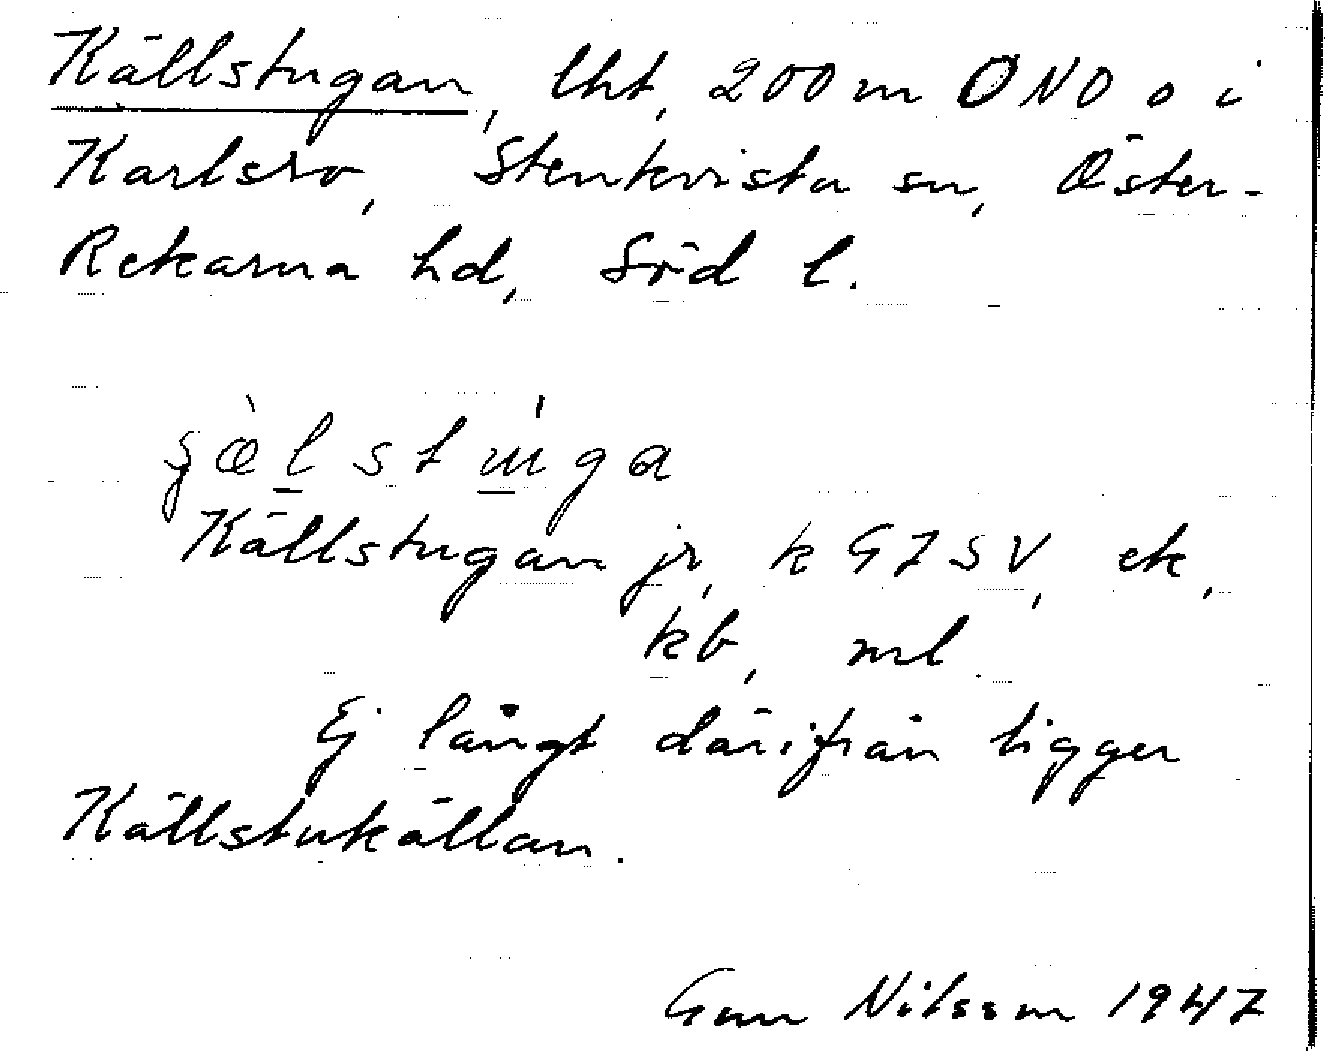 Källstugan, lht, 200 m ONO o i
Karlsro, Stenkvista sn, Öster-
Rekarna hd, Söd l.
Källstugan jr, k G7SV, ek,
kb, ml.
Ej långt därifrån ligger
Källstukällan.
Gun Nilsson 1947